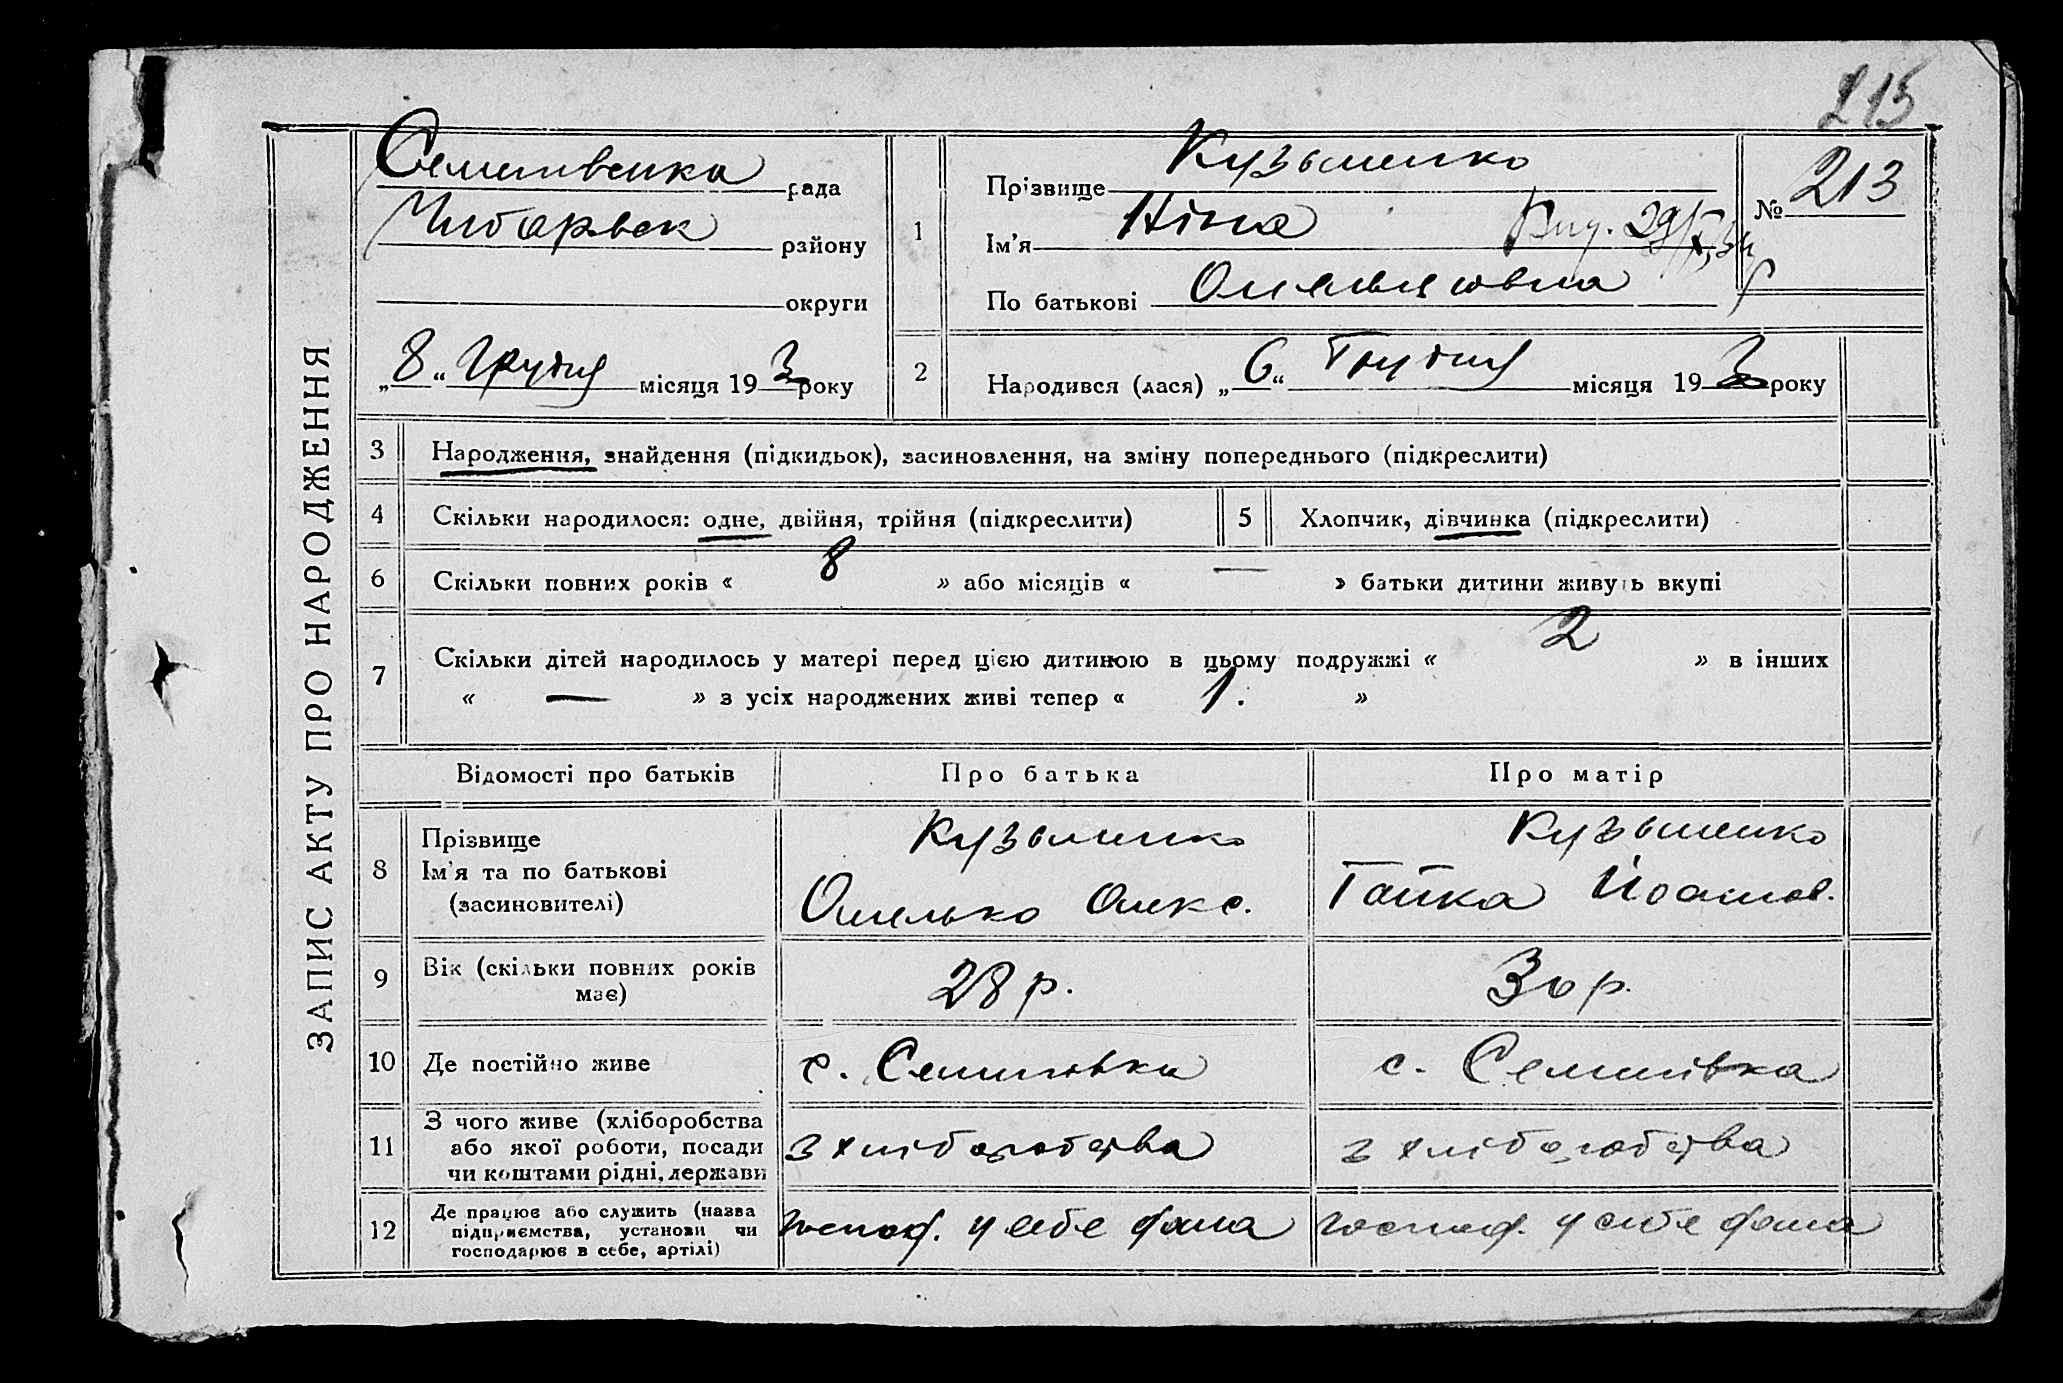 215
ЗАПИС АКТУ ПРО НАРОДЖЕННЯ
рада
району
округи
„8“ Грудня місяця 193 року
1
Прізвище Кузьменко
Ім'я Ніна
По батькові
№ 213
2
Народився (лася) „6“ Грудня місяця 193 року
3 Народження, знайдення (підкидьок), засиновлення, на зміну попереднього (підкреслити)
4 Скільки народилося: одне, двійня, трійня (підкреслити)
5 Хлопчик, дівчинка (підкреслити)
6 Скільки повних років « 8 » або місяців « — » батьки дитини живуть вкупі
7 Скільки дітей народилось у матері перед цією дитиною в цьому подружжі « 2 » в інших
« — » з усіх народжених живі тепер « 1. »
Відомості про батьків Про батька Про матір
8 Прізвище
Ім'я та по батькові
(засиновителі)
Кузьменко
Омелько Олекс.
Кузьменко
Гапка
9 Вік (скільки повних років
має)
28 р.
30 р.
10 Де постійно живе
с. Семенівка
с. Семенівка
11 З чого живе (хліборобства
або якої роботи, посади
чи коштами рідні, держави
з хліборобства
з хліборобства
12 Де працює або служить (назва
підприємства, установи чи
господарює в себе, артілі)
господ. у себе дома
господ. у себе дома